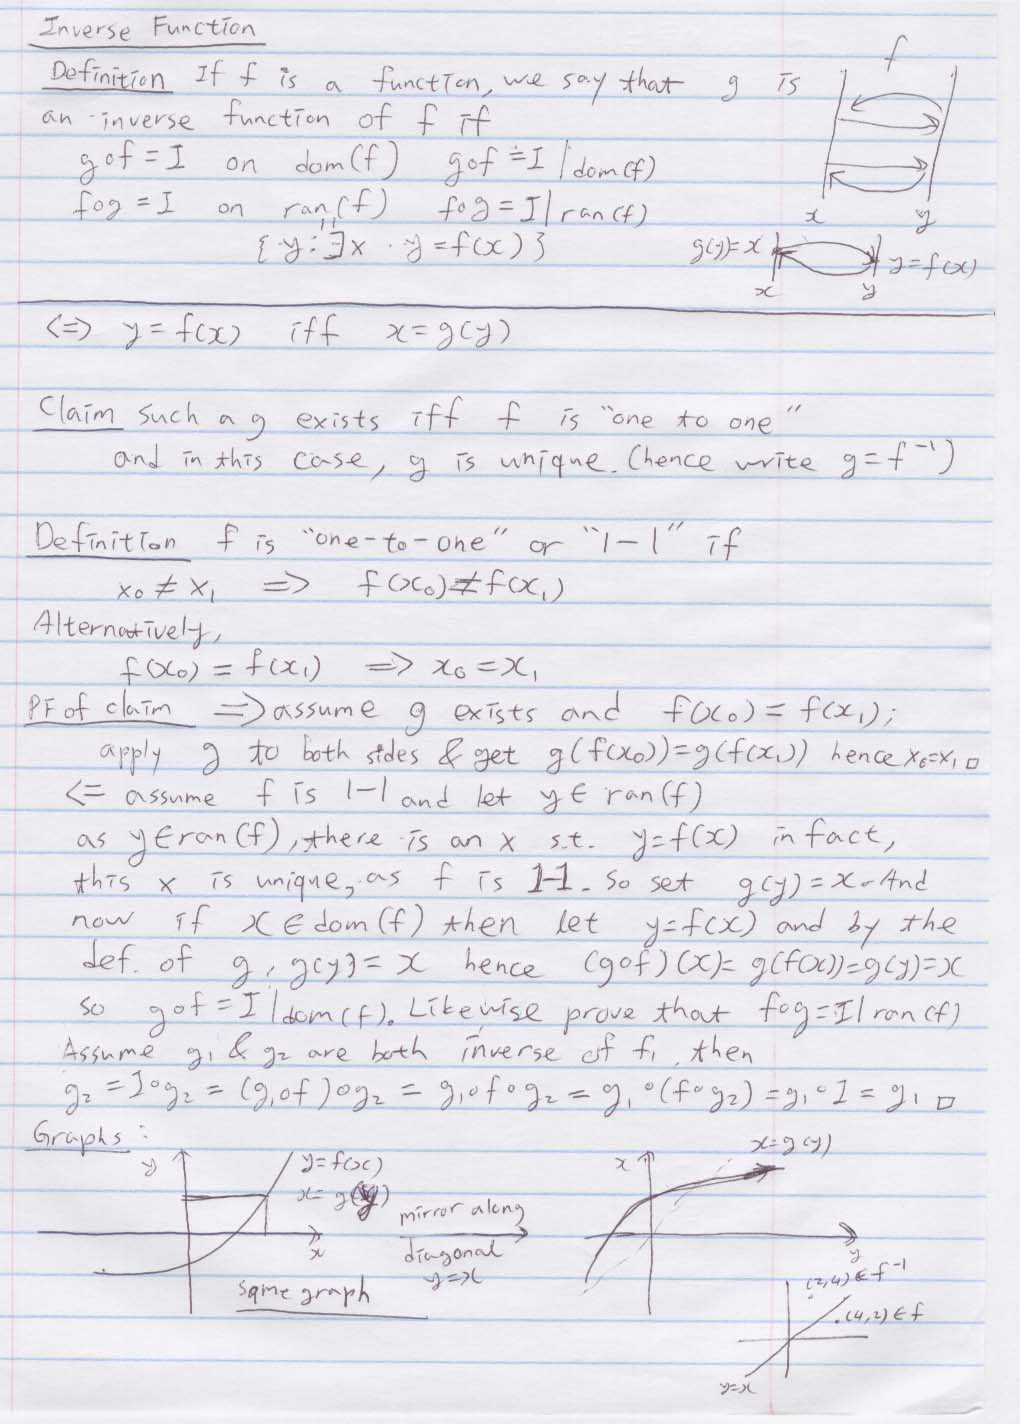 Inverse Function
Definition If f is a function, we say that g is
an inverse function of f if
gof = I on dom(f) gof = I | dom(f)
fog = I on ran(f) fog = I | ran(f)
"
{y : ∃x · y = f(x)}
f
x y
g(y) = x y = f(x)
x y
<=> y = f(x) iff x = g(y)
Claim such a g exists iff f is "one to one"
and in this case, g is unique. (hence write g = f⁻¹)
Definition f is "one-to-one" or "1-1" if
x₀ ≠ x₁ => f(x₀) ≠ f(x₁)
Alternatively,
f(x₀) = f(x₁) => x₀ = x₁
PF of claim => assume g exists and f(x₀) = f(x₁);
apply g to both sides & get g(f(x₀)) = g(f(x₁)) hence x₀=x₁ □
<= assume f is 1-1 and let y ∈ ran(f)
as y ∈ ran(f), there is an x s.t. y = f(x) in fact,
this x is unique, as f is 1-1. So set g(y) = x. And
now if x ∈ dom(f) then let y = f(x) and by the
def. of g, g(y) = x hence (gof)(x) = g(f(x)) = g(y) = x
so gof = I | dom(f). Likewise prove that fog = I | ran(f)
Assume g₁ & g₂ are both inverse of f, then
g₂ = I∘g₂ = (g₁of)∘g₂ = g₁∘f∘g₂ = g₁∘(f∘g₂) = g₁∘I = g₁ □
Graphs:
y y = f(x)
x = g(y)
x
same graph
mirror along
diagonal
y=x
x x = g(y)
y
(2,4) ∈ f⁻¹
.(4,2) ∈ f
y=x